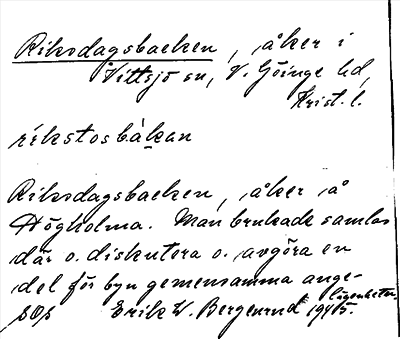 Riksdagsbacken, åker i
Vittsjö sn, V. Göinge hd,
Krist. l.
rikstosbakan
Riksdagsbacken, åker å
Högholma. Man brukade samlas
där o. diskutera o. avgöra en
del för byn gemensamma ange-
lägenheter.
Erik W. Bergenrud 1945.